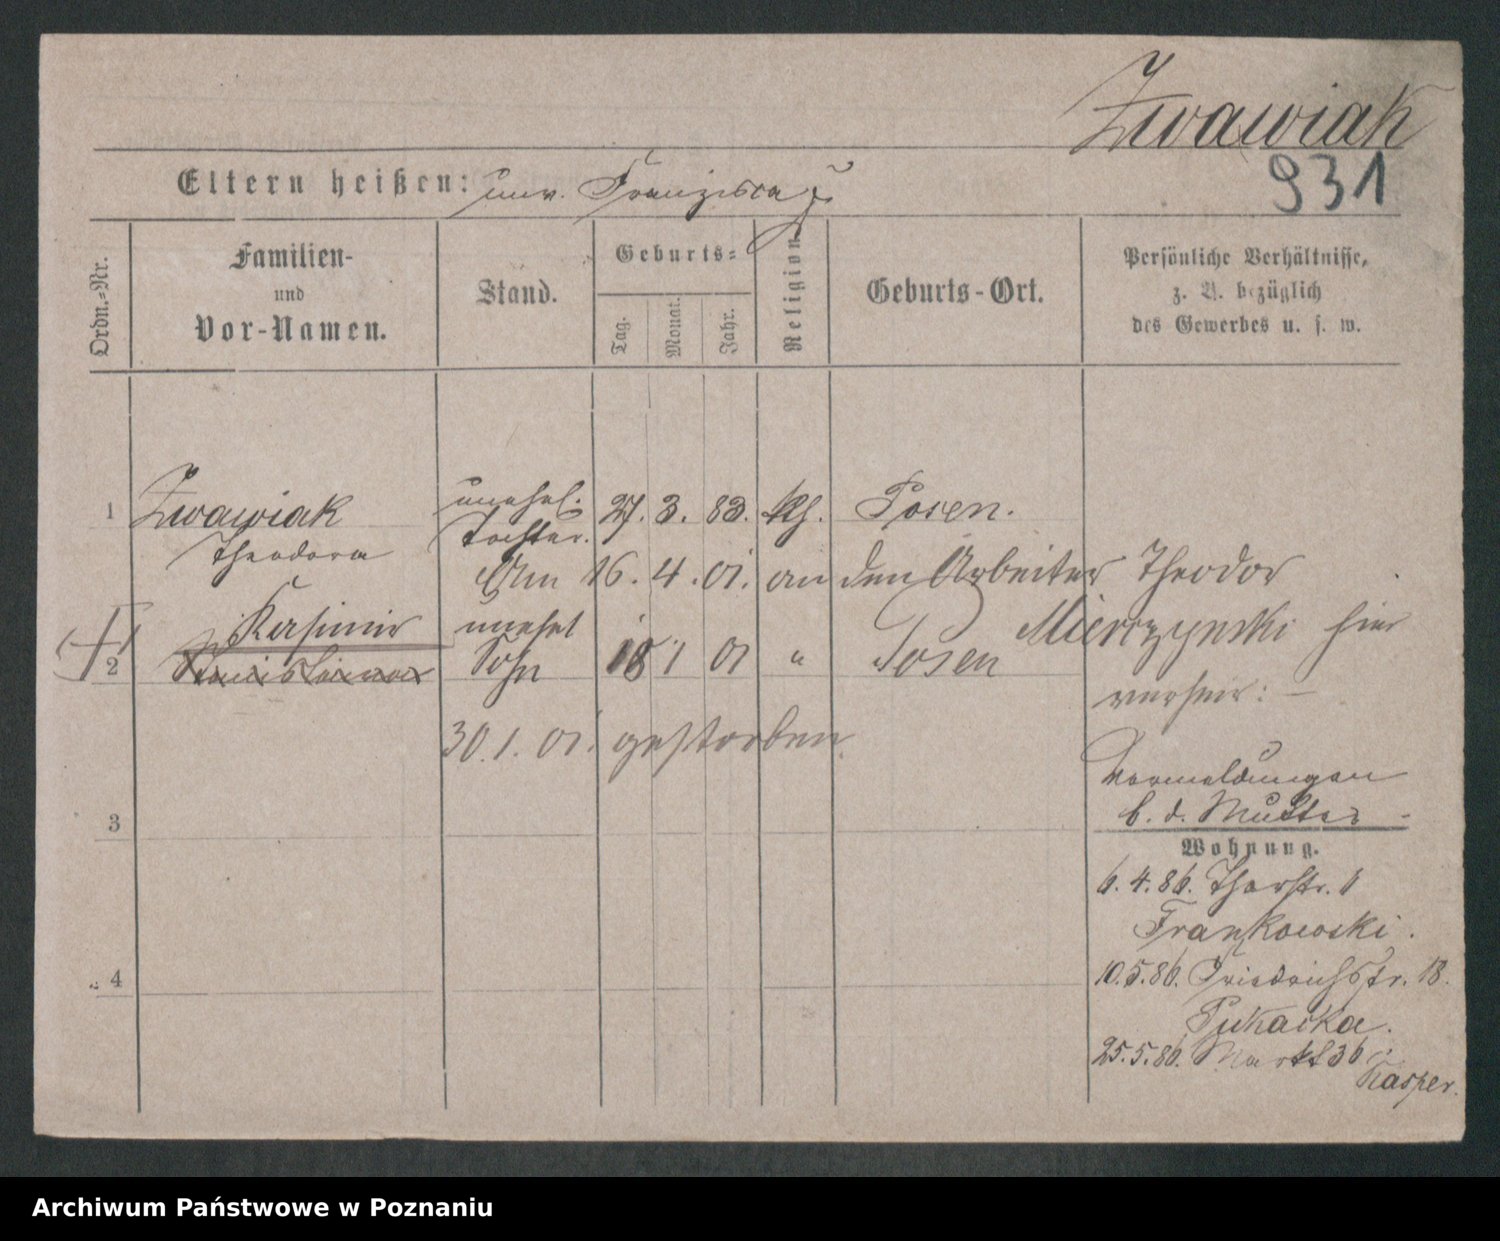 Zwawiak
931
Eltern heißen: unv. Franziska Z.
Ordn.-Nr.
Familien-
und
Vor-Namen.
Stand.
Geburts-
Tag.
Monat.
Jahr.
Religion
Geburts-Ort.
Persönliche Verhältnisse,
z. B. bezüglich
des Gewerbes u. s. w.
1 Zwawiak unehel. 27. 3. 83. kth. Posen.
Theodora Tochter.
Am 16. 4. 01. an den Arbeiter Theodor
Mierzynski hier
verheir: –
Kasimir unehel
2 Stanislaus Sohn 18 1 01 " Posen
30. 1. 01. gestorben
Vormeldungen
b. d. Mutter -
3
Wohnung.
6. 4. 86. Thorstr. 1
Frankowski.
4
10. 5. 86. Friedrichstr. 18.
Pukacka.
25. 5. 86. Markt 36
Kasper.
Archiwum Państwowe w Poznaniu